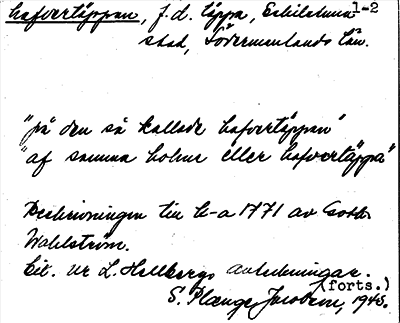 hafvertäppan, f.d. täppa, Eskilstuna 1-2
stad, Södermanlands län.
"på den så kallade hafvertäppan"
"af samma holme eller hafvertäppa"
Beskrivningen till k-a 1771 av Gotth.
Wahlström.
Cit. ur L. Hellbergs anteckningar.
(forts.)
S. Plænge Jacobson, 1945.